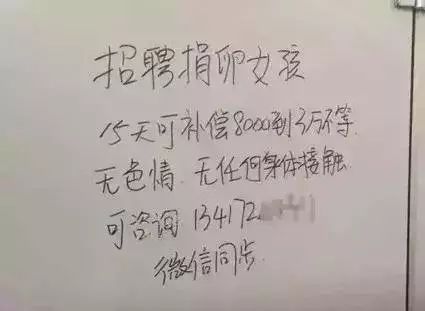 招聘捐卵女孩
15天可补偿8000到3万不等
无色情. 无任何身体接触
可咨询 134172
微信同步.